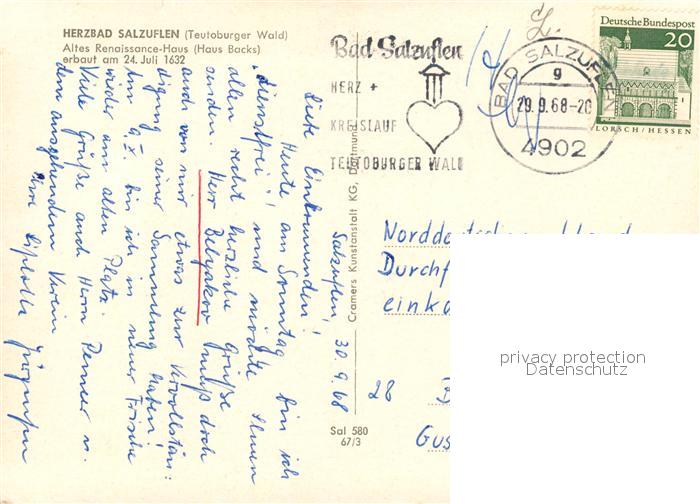 HERZBAD SALZUFLEN (Teutoburger Wald)
Altes Renaissance-Haus (Haus Backs)
erbaut am 24. Juli 1632
Salzuflen, 30.9.68
Liebe
Heute am Sonntag bin ich
„dienstfrei“ und möchte Ihnen
allen recht herzliche Grüße
senden. Herr Belyakov muß doch
auch von mir etwas zur Vervollstän=
digung seiner Sammlung haben!
Am 9.X. bin ich in neuer Frische
wieder am alten Platz.
Viele Grüße auch Herrn u.
dem ausgehendem Verein
Ihre
Cramers Kunstanstalt KG, Dortmund
Sal 580
67/3
Bad Salzuflen
HERZ +
KREISLAUF
TEUTOBURGER WALD
BAD SALZUFLEN
g
29.9.68-20
4902
Deutsche Bundespost
20
LORSCH/HESSEN
Norddeutschen
Durchf
einka
28
Gus
privacy protection
Datenschutz